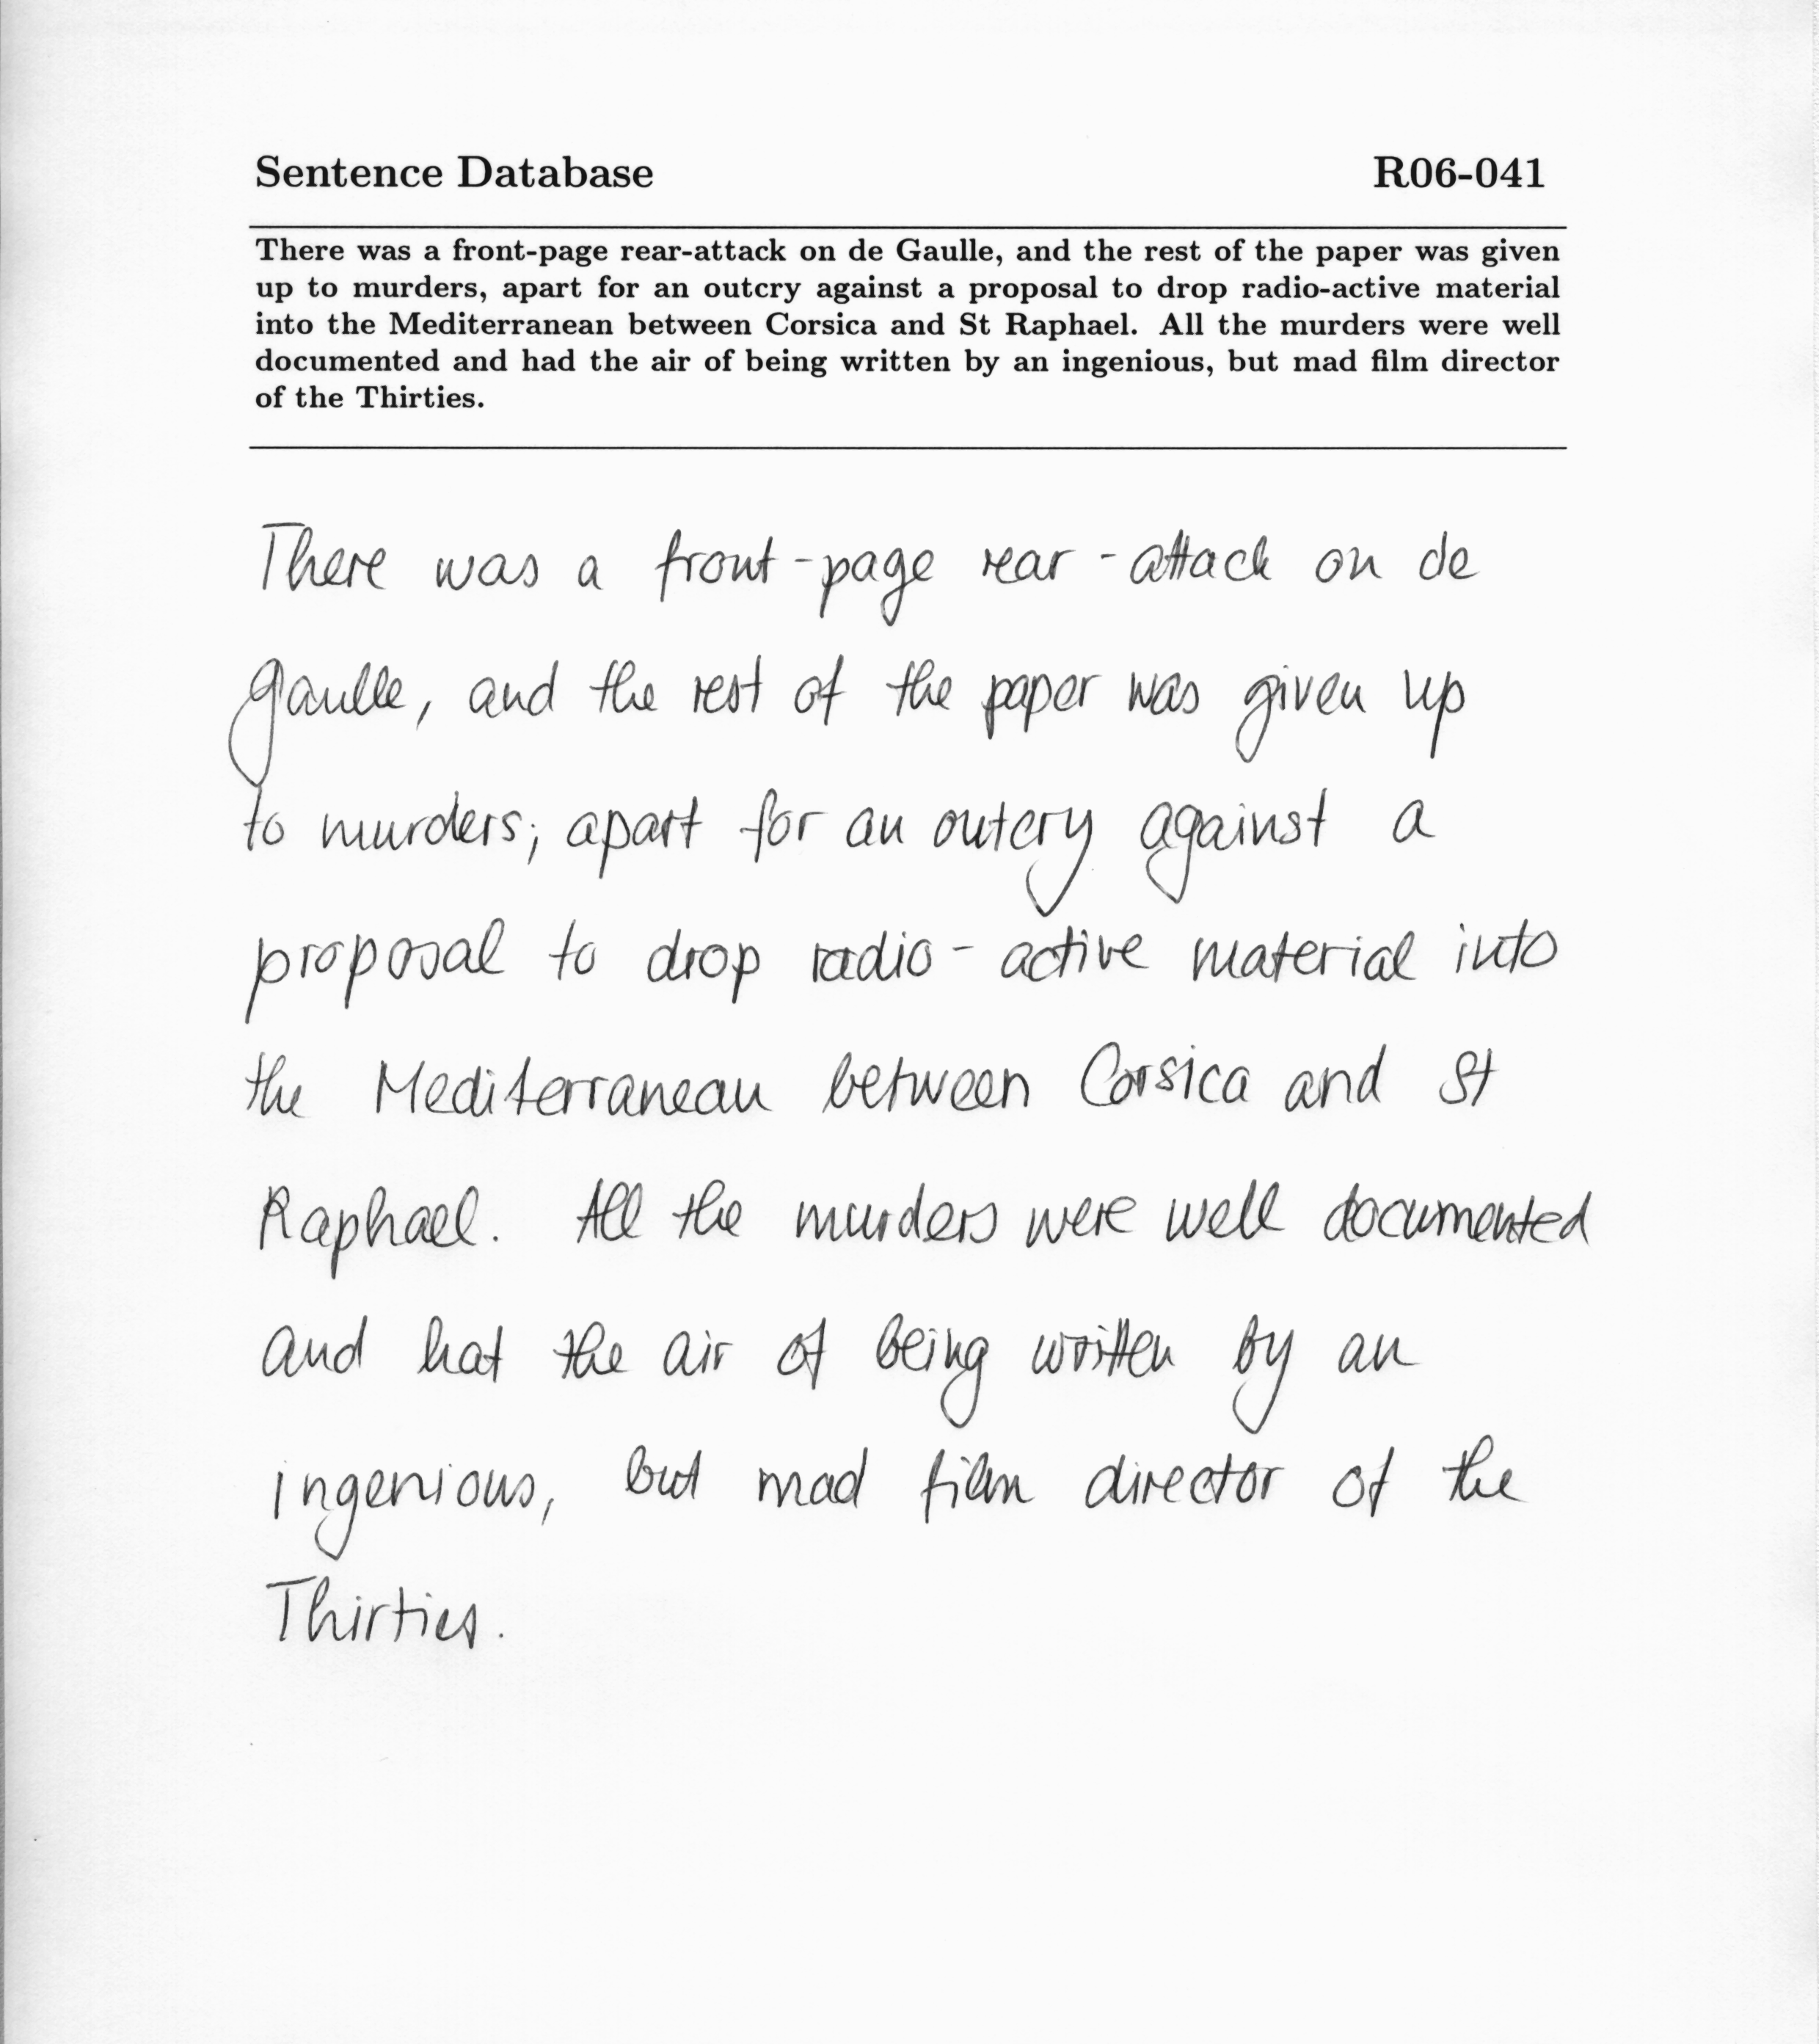 Sentence Database R06-041
There was a front-page rear-attack on de Gaulle, and the rest of the paper was given
up to murders, apart for an outcry against a proposal to drop radio-active material
into the Mediterranean between Corsica and St Raphael. All the murders were well
documented and had the air of being written by an ingenious, but mad film director
of the Thirties.
There was a front-page rear-attack on de
Gaulle, and the rest of the paper was given up
to murders; apart for an outcry against a
proposal to drop radio-active material into
the Mediterranean between Corsica and St
Raphael. All the murders were well documented
and hat the air of being written by an
ingenious, but mad film director of the
Thirties.